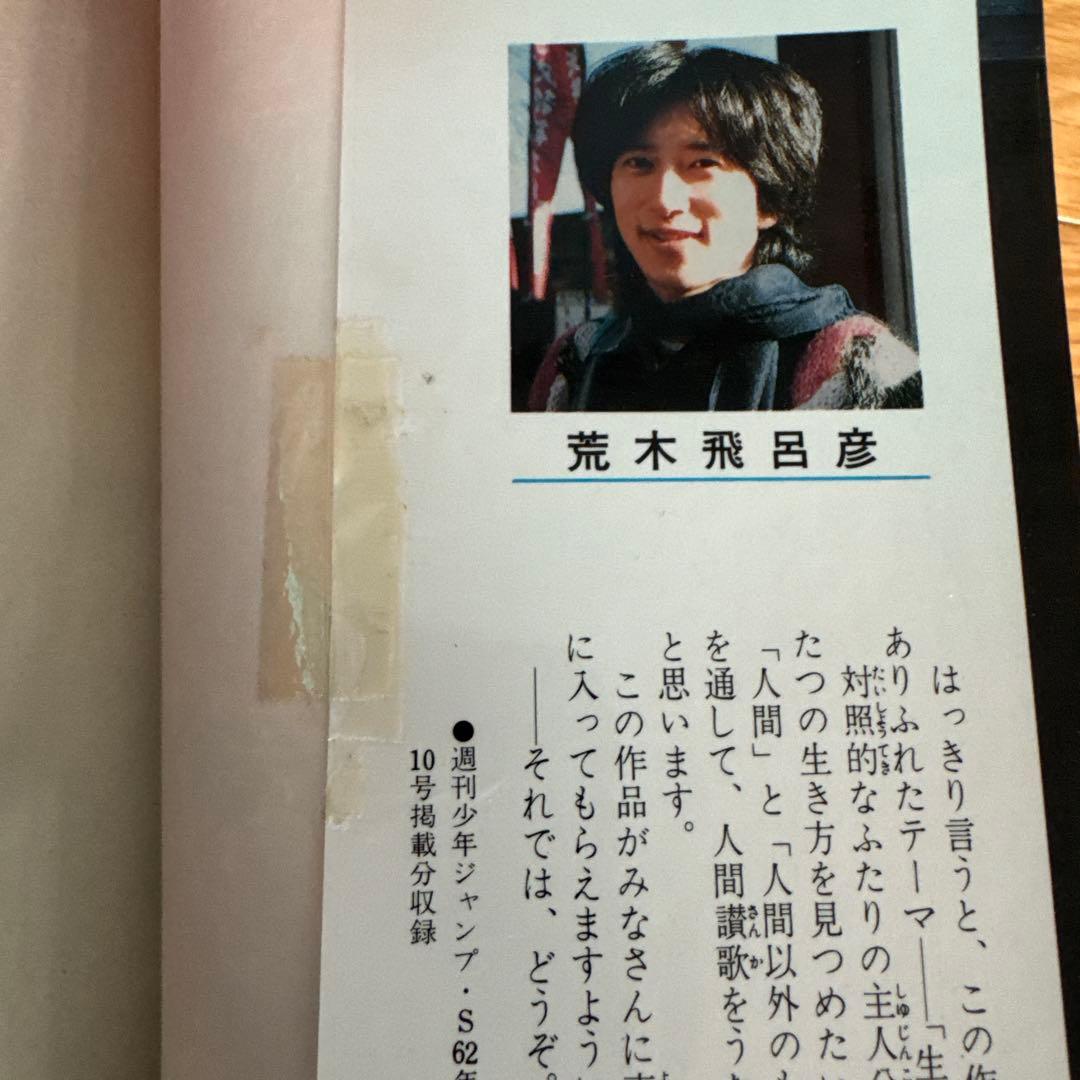 荒木飛呂彦
はっきり言うと、この作
ありふれたテーマ――「生
対照的なふたりの主人公
たつの生き方を見つめたい
「人間」と「人間以外の
を通して、人間讃歌をう
と思います。
この作品がみなさんに
に入ってもらえますように
――それでは、どうぞ。
●週刊少年ジャンプ・S62年
10号掲載分収録